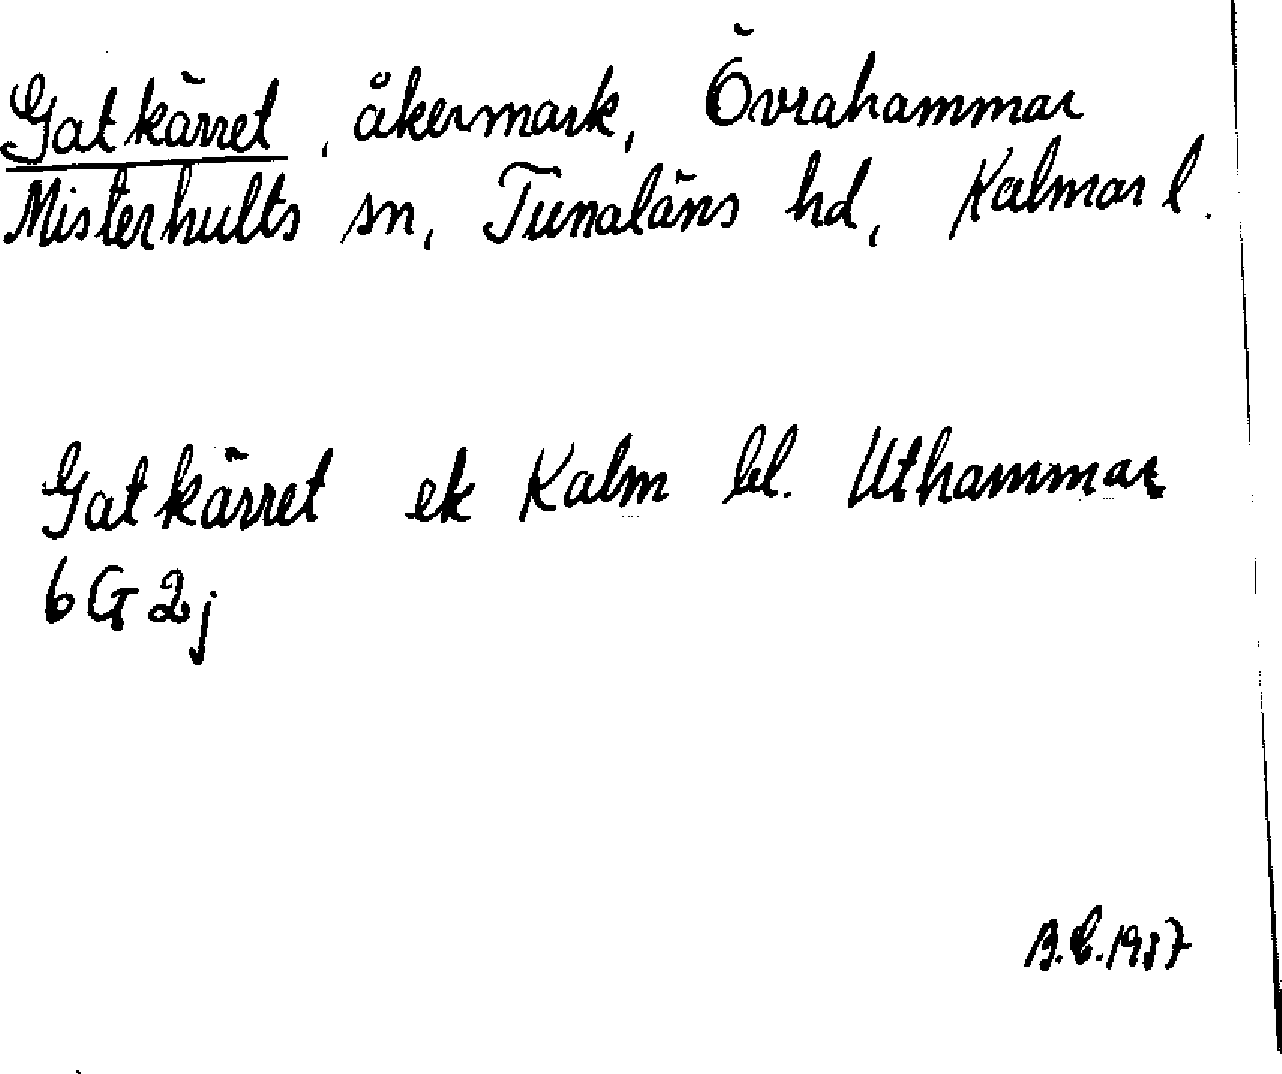 Gatkärret, åkermark, Övrahammar
Misterhults sn, Tunaläns hd, Kalmar l.
Gatkärret ek Kalm bl. Uthammar
6G2j
B.E.1987